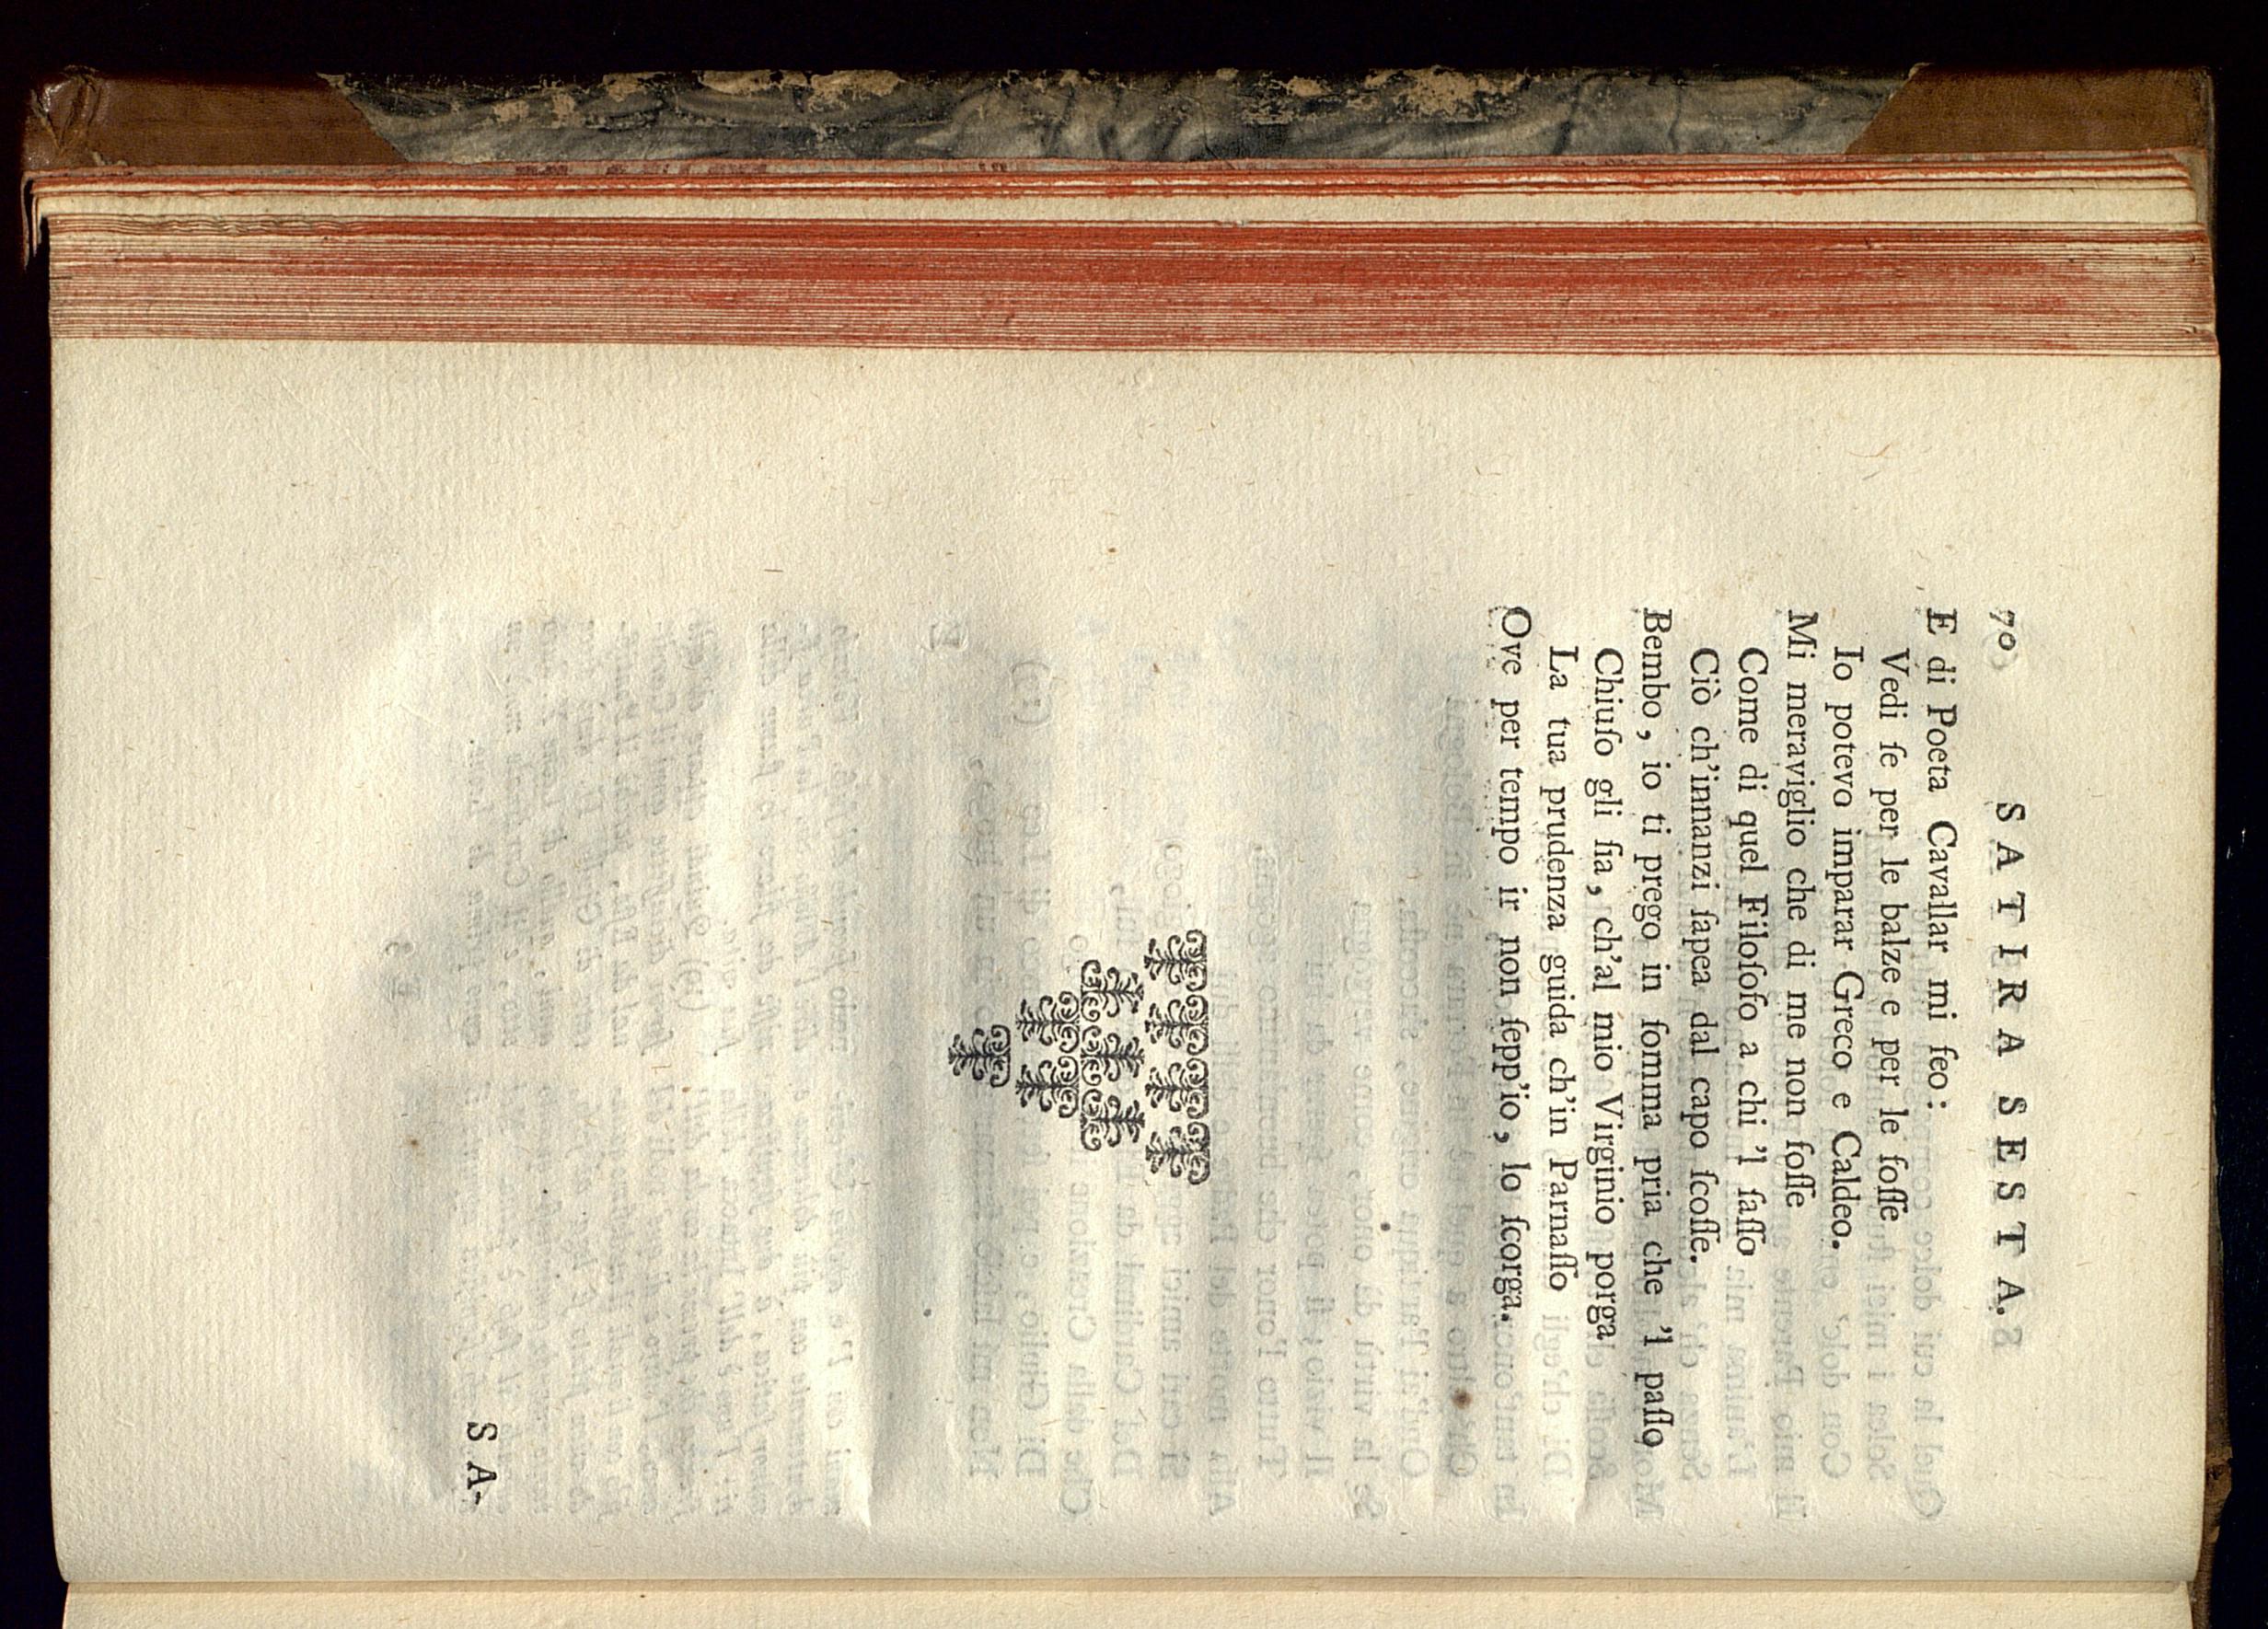 70 SATIRA SESTA.
E di Poeta Cavallar mi feo:
Vedi ſe per le balze e per le foſſe
Io potevo imparar Greco e Caldeo.
Mi meraviglio che di me non foſſe
Come di quel Filoſofo a chi 'l ſaſſo
Ciò ch'innanzi ſapea dal capo ſcoſſe.
Bembo, io ti prego in ſomma pria che 'l paſſo
Chiuſo gli ſia, ch'al mio Virginio porga
La tua prudenza guida ch'in Parnaſſo
Ove per tempo ir non ſepp'io, lo ſcorga.
SA-